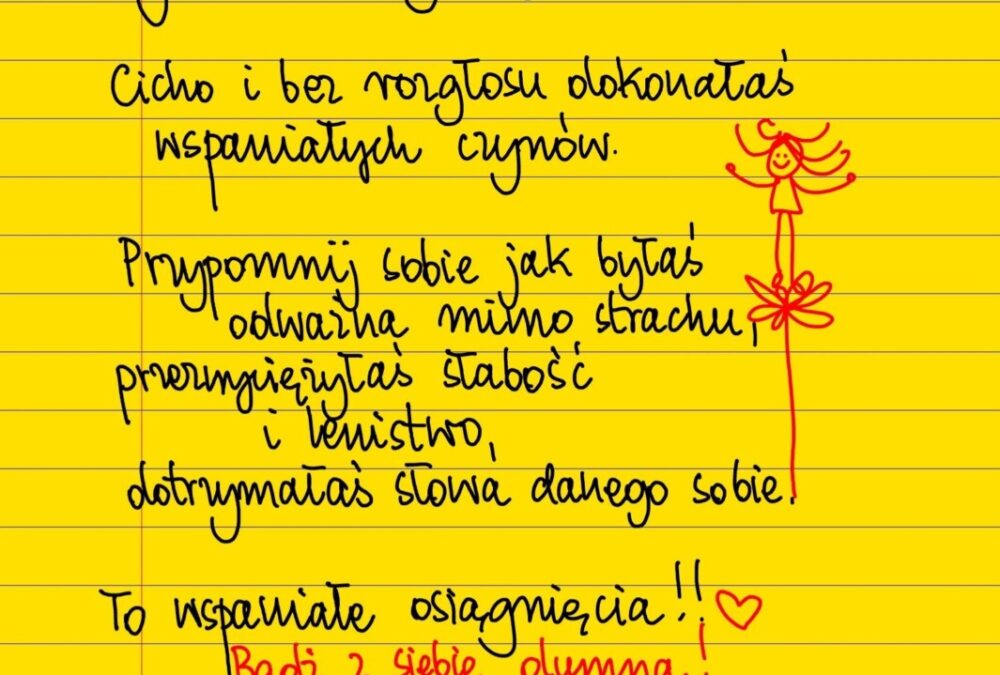 Cicho i bez rozgłosu dokonałaś
wspaniałych czynów.
Przypomnij sobie jak byłaś
odważna mimo strachu,
przezwyciężyłaś słabość
i lenistwo,
dotrzymałaś słowa danego sobie.
To wspaniałe osiągnięcia!!
Bądź z siebie dumna!